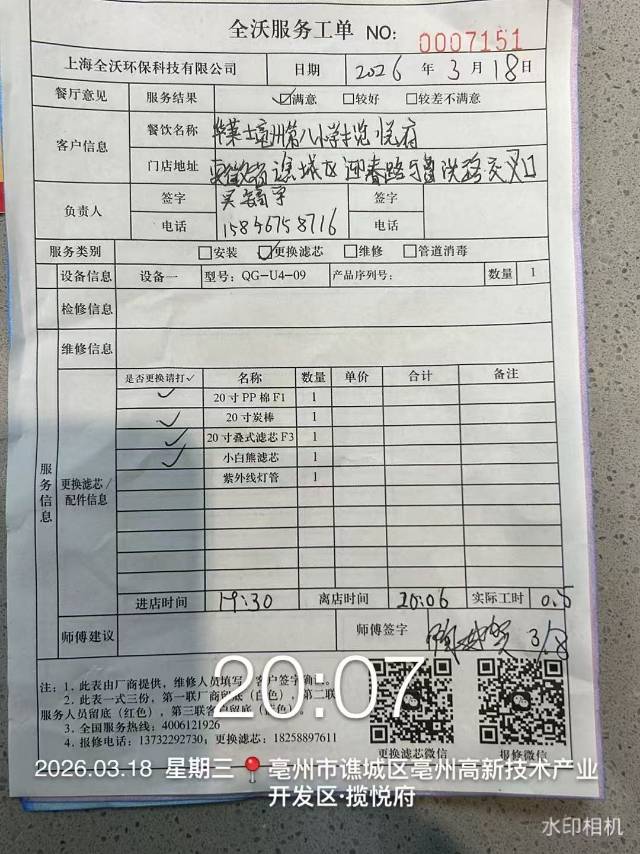 全沃服务工单 NO: 0007151
上海全沃环保科技有限公司 日期 2026 年 3 月 18 日
餐厅意见 服务结果 ☑满意 □较好 □较差不满意
客户信息 餐饮名称 华莱士亳州第八小学揽悦府
门店地址 安徽省谯城区迎春路与曹洪路交叉口
负责人 签字 签字
电话 15846758716 电话
服务类别 □安装 ☑更换滤芯 □维修 □管道消毒
设备信息 设备一 型号: QG-U4-09 产品序列号: 数量 1
检修信息
维修信息
服务信息
更换滤芯/配件信息
是否更换请打✓ 名称 数量 单价 合计 备注
✓ 20寸PP棉F1 1
✓ 20寸炭棒 1
✓ 20寸叠式滤芯F3 1
✓ 小白熊滤芯 1
紫外线灯管 1
进店时间 19:30 离店时间 20:06 实际工时 0.5
师傅建议 师傅签字 3/18
注: 1. 此表由厂商提供，维修人员填写，客户签字确口。
2. 此表一式三份，第一联厂商留底（白色），第二联
服务人员留底（红色），第三联客户留底（蓝色）。
3. 全国服务热线: 4006121926
4. 报修电话: 13732292730; 更换滤芯: 18258897611
更换滤芯微信 报修微信
20:07
2026.03.18 星期三 亳州市谯城区亳州高新技术产业
开发区·揽悦府
水印相机